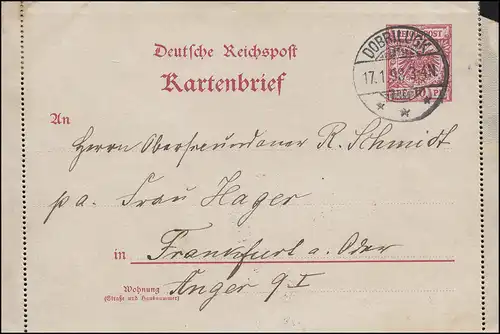 Deutsche Reichspost
REICHSPOST
Kartenbrief
DOBRILUGK
17.1.98.3-4N
An
Herrn R. Schmidt
p a. Frau Hager
in Frankfurt a. Oder
Wohnung Anger 9 I
(Straße und Hausnummer)